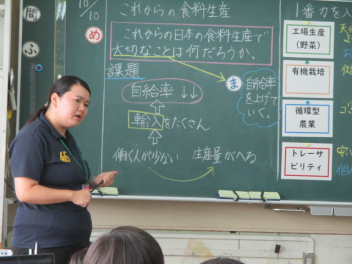 問
ふ
10/10
これからの食料生産
め
これからの日本の食料生産で
大切なことは何だろうか。
課題
自給率↓↓
輸入をたくさん
働く人が少ない
生産量がへる
ま
自給率
を上げて
いく。
1番力を入
工場生産
(野菜)
有機栽培
循環型
農業
トレーサ
ビリティ